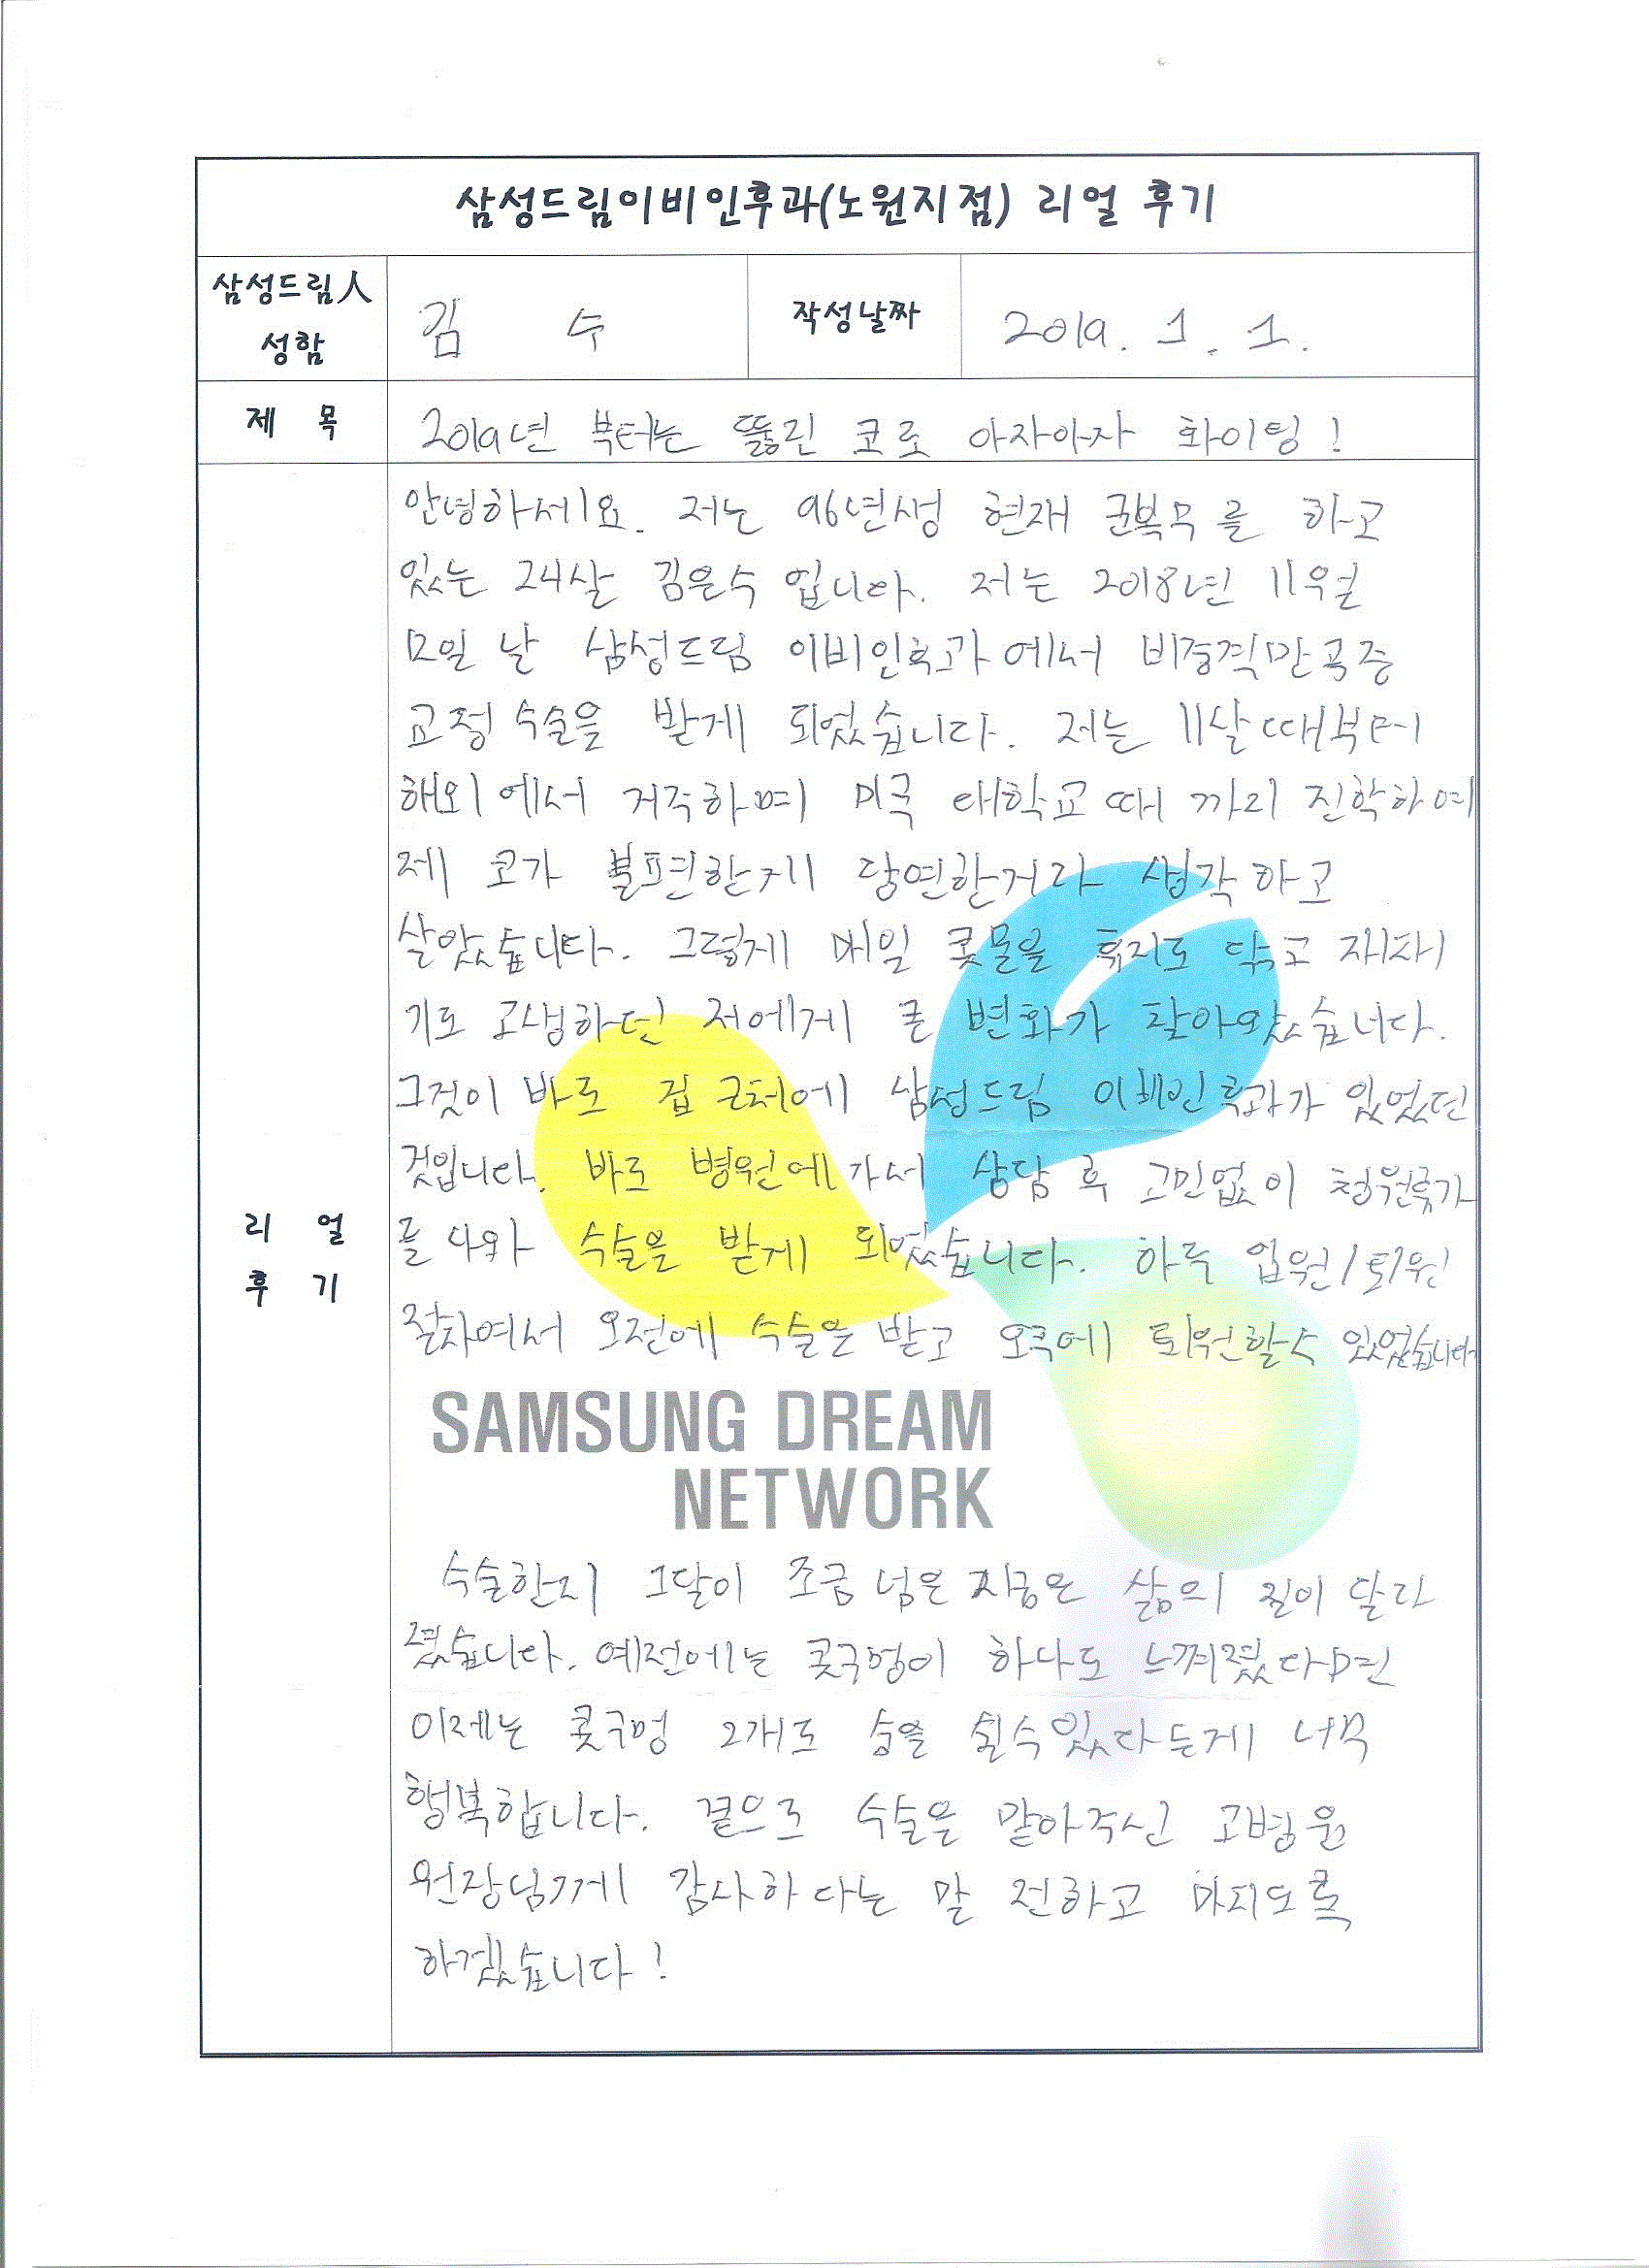 삼성드림이비인후과(노원지점) 리얼 후기
삼성드림人 성함
김 수
작성날짜
2019. 1. 1.
제 목
2019년 부터는 뚫린 코로 아자아자 화이팅!
리 얼 후 기
안녕하세요. 저는 96년생 현재 군복무를 하고
있는 24살 김은수 입니다. 저는 2018년 11월
모일 날 삼성드림 이비인후과에서 비중격만곡증
교정 수술을 받게 되었습니다. 저는 11살때부터
해외에서 거주하며 미국 대학교 때 까지 진학하며
제 코가 불편한게 당연한거라 생각하고
살았습니다. 그렇게 매일 콧물을 휴지로 닦고 재채
기로 고생하던 저에게 큰 변화가 찾아왔습니다.
그것이 바로 집 근처에 삼성드림 이비인후과가 있었던
것입니다. 바로 병원에가서 상담 후 고민없이 청원휴가
를 나와 수술을 받게 되었습니다. 하루 입원/퇴원
절차여서 오전에 수술을 받고 오후에 퇴원할수 있었습니다
SAMSUNG DREAM
NETWORK
수술한지 1달이 조금 넘은 지금은 삶의 질이 달라
졌습니다. 예전에는 콧구멍이 하나로 느껴졌다면
이제는 콧구멍 2개로 숨을 쉴수있다는게 너무
행복합니다. 끝으로 수술을 맡아주신 고병윤
원장님께 감사하다는 말 전하고 마치도록
하겠습니다!